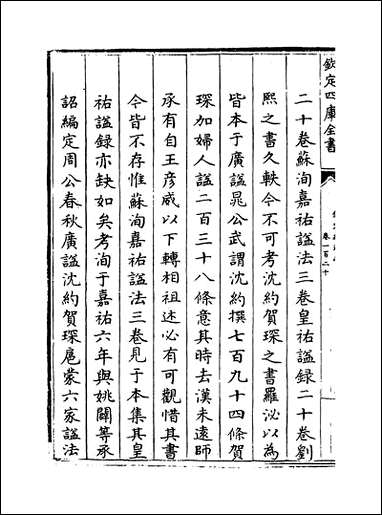 欽定四庫全書
二十卷蘇洵嘉祐諡法三卷皇祐諡録二十卷劉
熙之書久軼今不可考沈約賀琛之書羅泌以為
皆本于廣諡晁公武謂沈約撰七百九十四條賀
琛加婦人諡二百三十八條意其時去漢未遠師
承有自王彦威以下轉相祖述必有可觀惜其書
今皆不存惟蘇洵嘉祐諡法三卷見于本集其皇
祐諡録亦缺如矣考洵于嘉祐六年與姚闢等承
詔編定周公春秋廣諡沈約賀琛扈蒙六家諡法